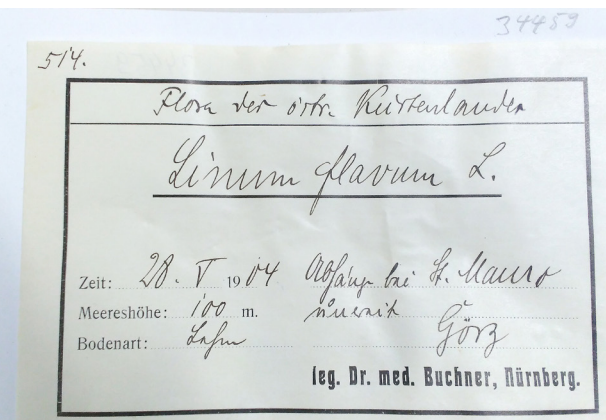 34459
514.
Flora der östr. Küstenlandes
Linum flavum L.
Zeit: 28. V 1904 Abhänge bei St. Mauro
Meereshöhe: 100 m. unweit Görz
Bodenart: Lehm
leg. Dr. med. Buchner, Nürnberg.